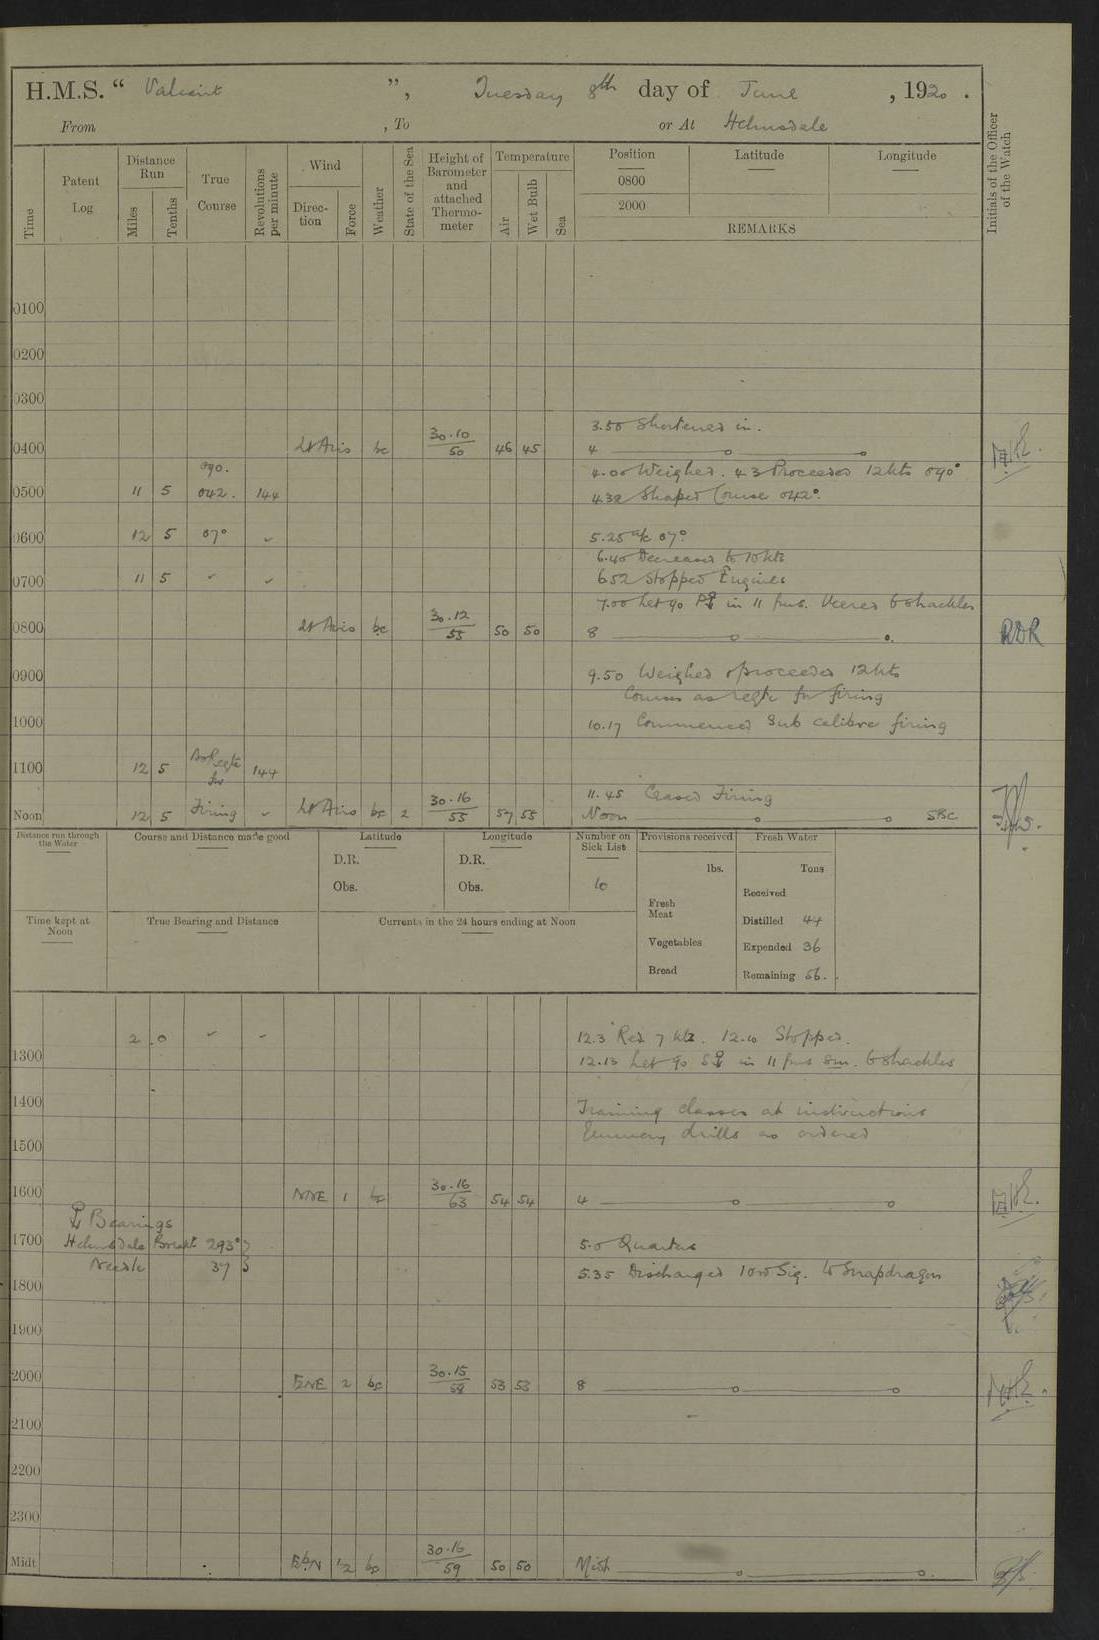 H.M.S. " Valiant ", Tuesday 8th day of June , 1920 .
From , To or At Helmsdale
Time Patent Log Distance Run Miles Tenths True Course Revolutions per minute Wind Direction Force Weather State of the Sea Height of Barometer and attached Thermometer Temperature Air Wet Bulb Sea Position 0800 2000 Latitude Longitude
REMARKS
Initials of the Officer of the Watch
0100
0200
0300
3.50 Shortened in.
0400 Lt Airs bc 30.10/50 46 45 4
090. 4.00 Weighed. 4.3 Proceeded 12 kts 090°
0500 11 5 042. 144 4.32 Shaped Course 042°.
0600 12 5 07° 5.25 a/c 07°.
6.40 Decreased to 10 kts
0700 11 5 6.52 Stopped Engines
7.00 Let go P in 11 fms. Veered 6 shackles
0800 Lt Airs bc 30.12/55 50 50 8 RDR
0900 9.50 Weighed & proceeded 12 kts
Courses as reqte for firing
1000 10.17 Commenced Sub calibre firing
1100 12 5 As Reqte for 144
11.45 Ceased Firing
Noon 12 5 Firing Lt Airs bc 2 30.16/55 57 55 Noon
Distance run through the Water Course and Distance made good Latitude Longitude Number on Sick List Provisions received Fresh Water
D.R. D.R. lbs. Tons
Obs. Obs. 10 Received
Fresh Meat
Time kept at Noon True Bearing and Distance Currents in the 24 hours ending at Noon Distilled 44
Vegetables Expended 36
Bread Remaining 56.
2 .0 12.3 Red 7 kts. 12.10 Stopped.
1300 12.13 Let go S in 11 fms 6 shackles
1400 Training classes at instructions
1500 Gunnery drills as ordered
1600 NNE 1 bc 30.16/63 54 54 4
Bearings
1700 Helmsdale Breakt 293° 5.0 Quarters
Needle 37 5.35 Discharged 1 ord Sig. to Snapdragon
1800
1900
2000 ENE 2 bc 30.15/58 53 53 8
2100
2200
2300
Midt. EbN 1/2 bc 30.16/59 50 50 Midt.